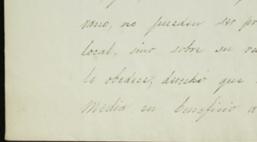 nano, no puedan ser pr
local, sino sobre su va
le obedece, derecho que
media en beneficio d